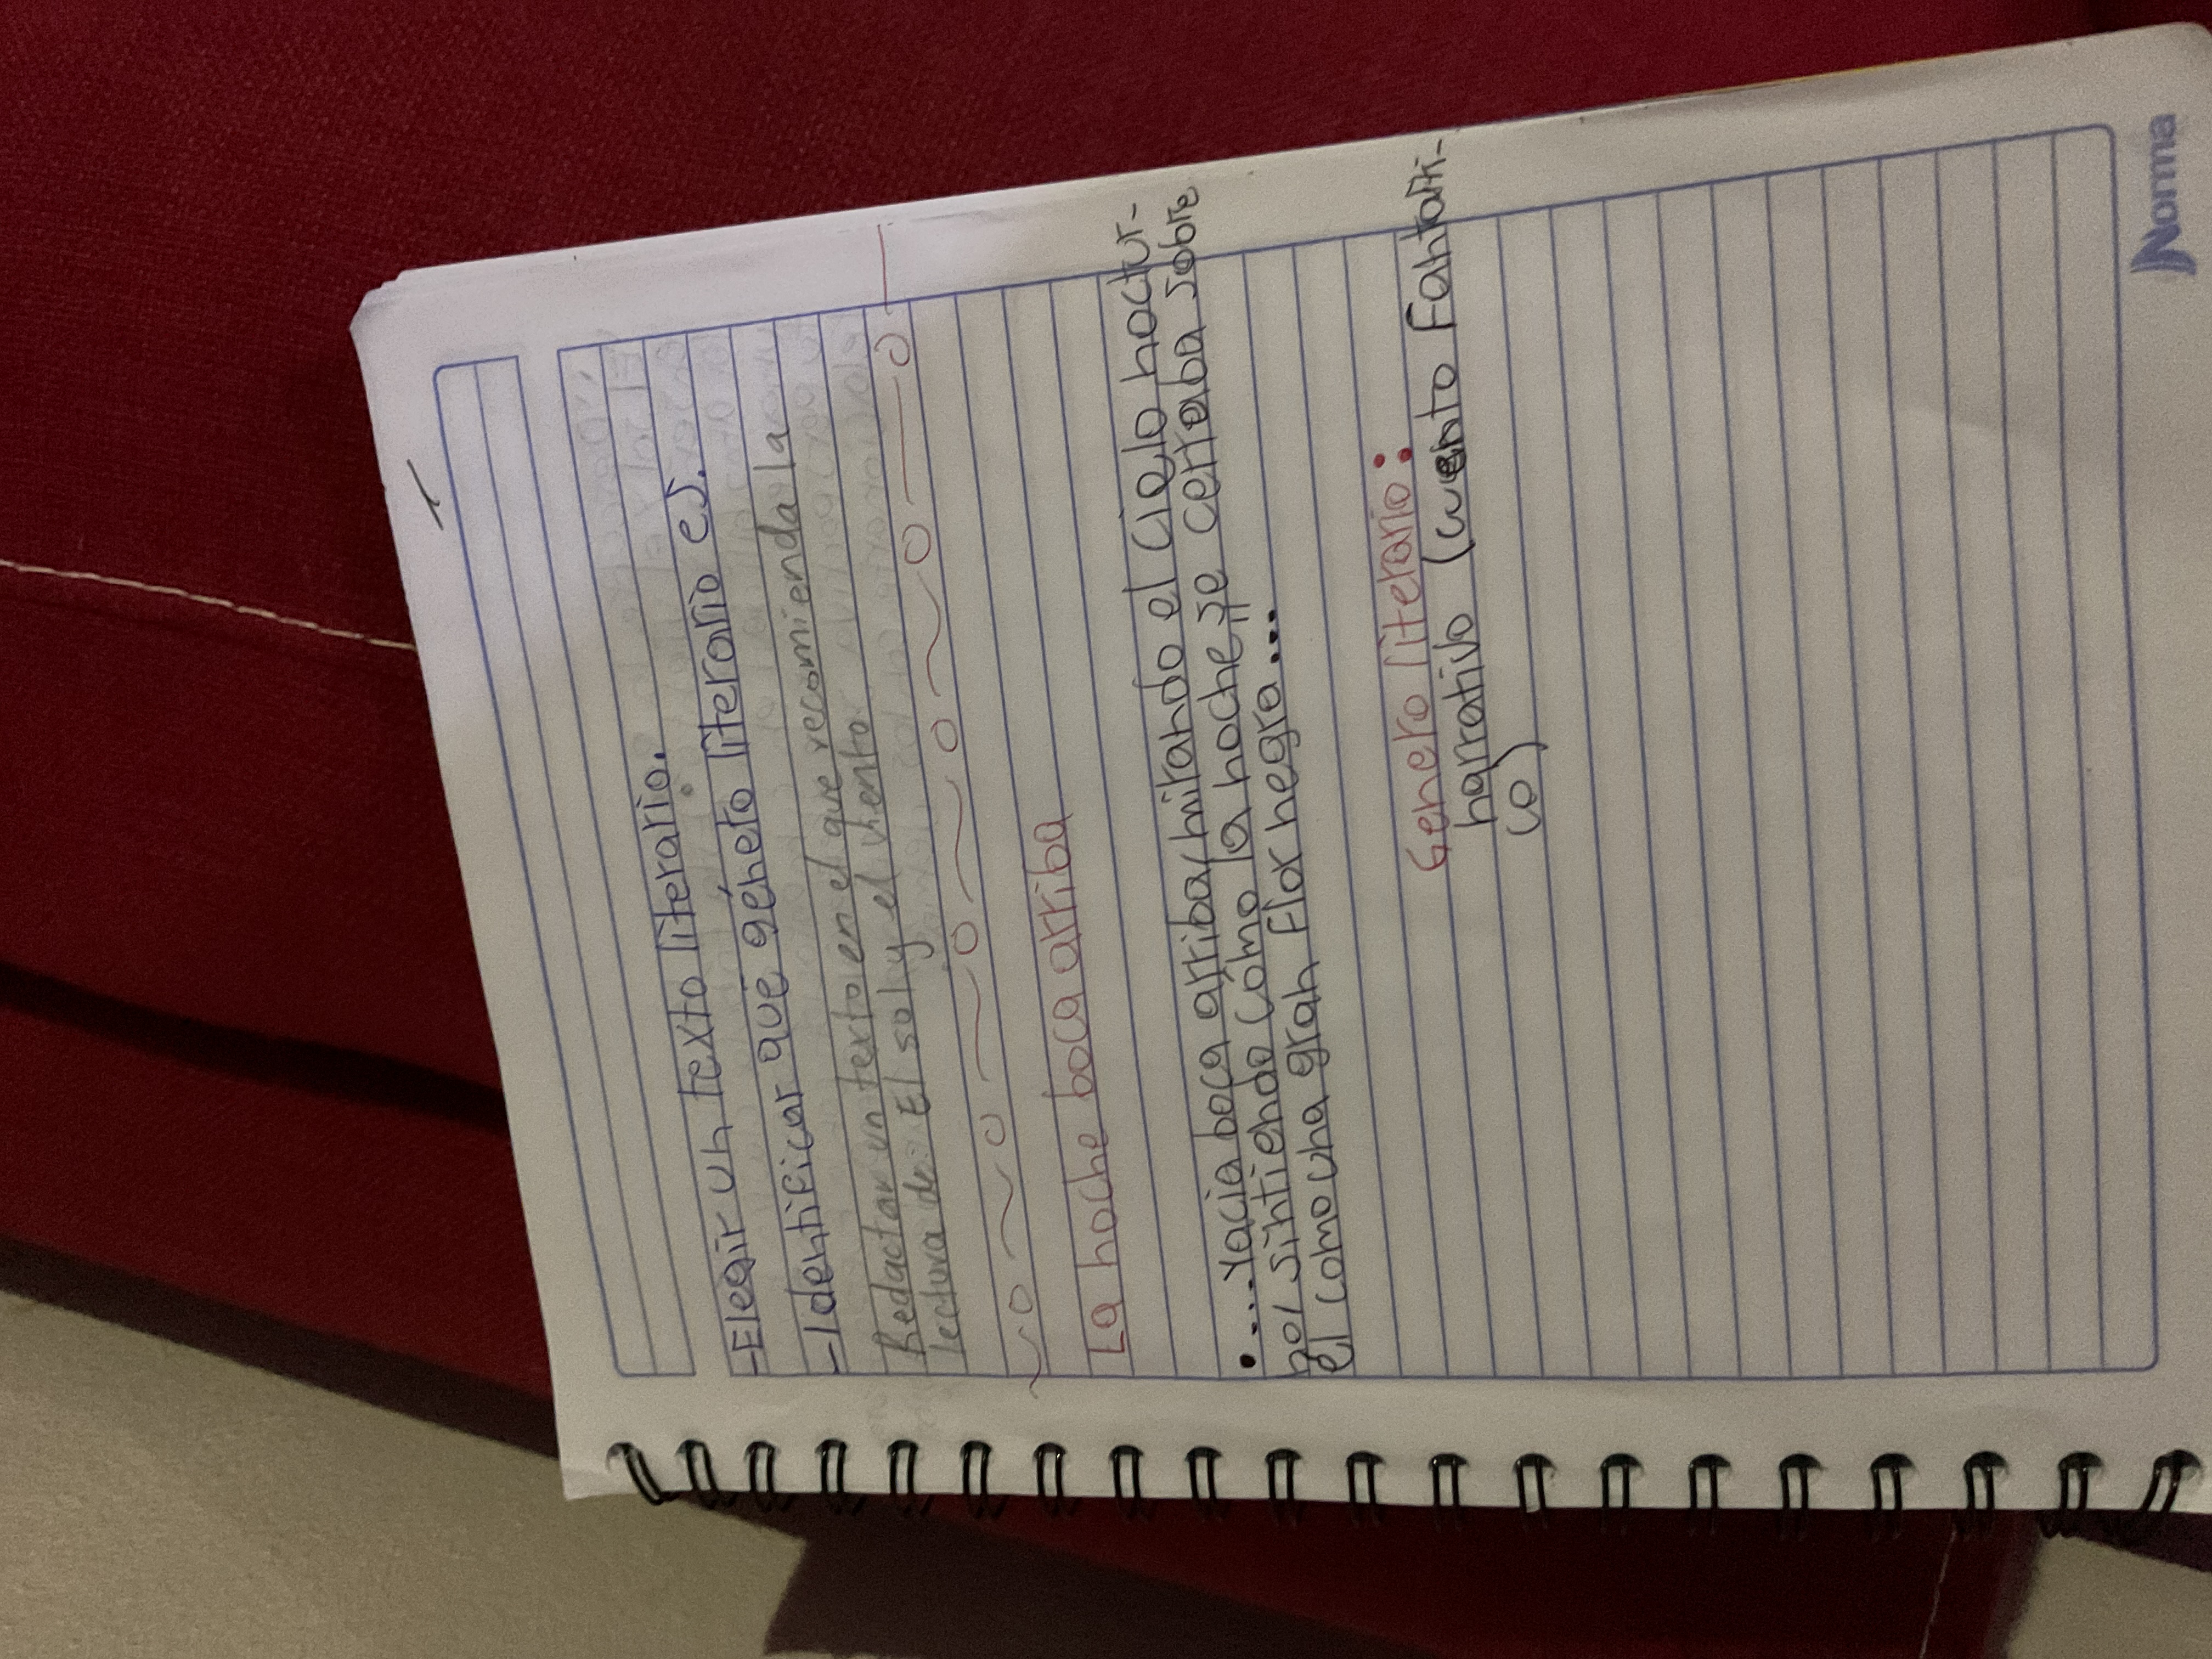 -Elegir un texto literario.
-Identificar qué género literario es.
Redactar un texto en el que recomienda la
lectura de: El sol y el viento
La noche boca arriba
•....Yacía boca arriba, mirando el cielo noctur-
no, sintiendo cómo la noche se cerraba sobre
él como una gran flor negra...
Genero literario:
narrativo (cuento Fantasti-
co)
Norma